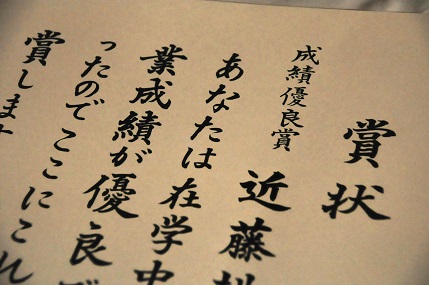 賞状
成績優良賞
近藤
あなたは在学中
業成績が優良で
ったのでここにこれ
賞します